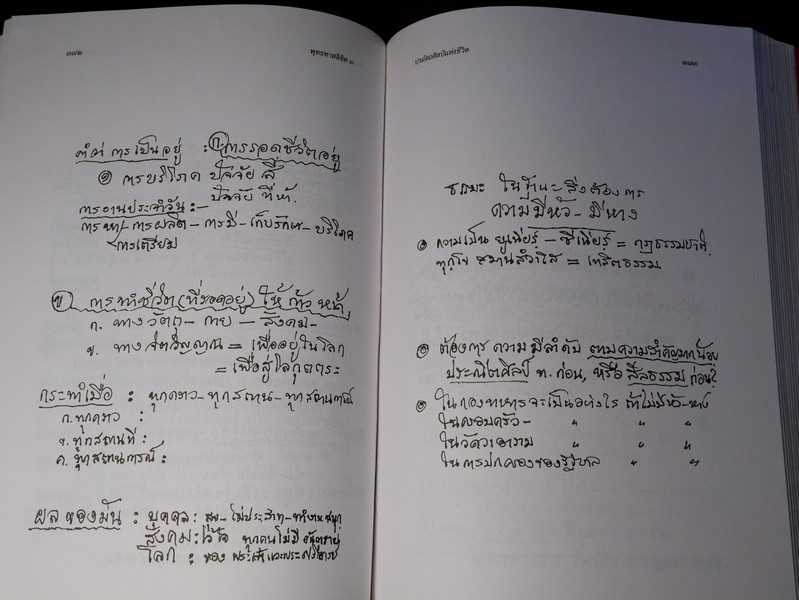 ๓๗๒
พุทธทาสลิขิต ๓
คำว่า การเป็นอยู่ : ก การรอดชีวิตอยู่
๑ การบริโภค ปัจจัย สี่
ปัจจัย ที่ห้า.
การงานประจำวัน :-
การหา - การผลิต - การมี - เก็บรักษา - บริโภค
การเตรียม
ข การทำชีวิต (ที่รอดอยู่) ให้ ก้าว หน้า,
ก. ทางวัตถุ - กาย - สังคม -
ข. ทาง จิตวิญญาณ = เพื่ออยู่ในโลก
= เพื่อสู่โลกุตตระ
กระทำเมื่อ : ทุกคราว - ทุกสถาน - ทุกสถานการณ์
ก. ทุกคราว :
ข. ทุกสถานที่ :
ค. ทุกสถานการณ์ :
ผล ของมัน : บุคคล : สุข - ไม่ประสาท - ทำงานสนุก
สังคม : ไว้ใจ ทุกคนไม่มี อันตราย
โลก : ของ พระเจ้า และพระศรีอารย์
ปรมัตถศิลป์แห่งชีวิต
๓๗๓
ธรรมะ ในฐานะ สิ่งต้องการ
ความมีหัว - มีหาง
๑ ความเป็น ยูเนียร์ - ซีเนียร์ = กฎธรรมชาติ.
= จริตธรรม
๒ ต้องการ ความ มีลำดับ ตามความสำคัญมากน้อย
ประณีตศิลป์ ท. ก่อน, หรือ ศีลธรรม ก่อน?
๓ ในกองทหารจะเป็นอย่างไร ถ้าไม่มีหัว - หาง
ในครอบครัว - " " "
ในวัดวาอาราม " " "
ในการปกครองของรัฐบาล " " "